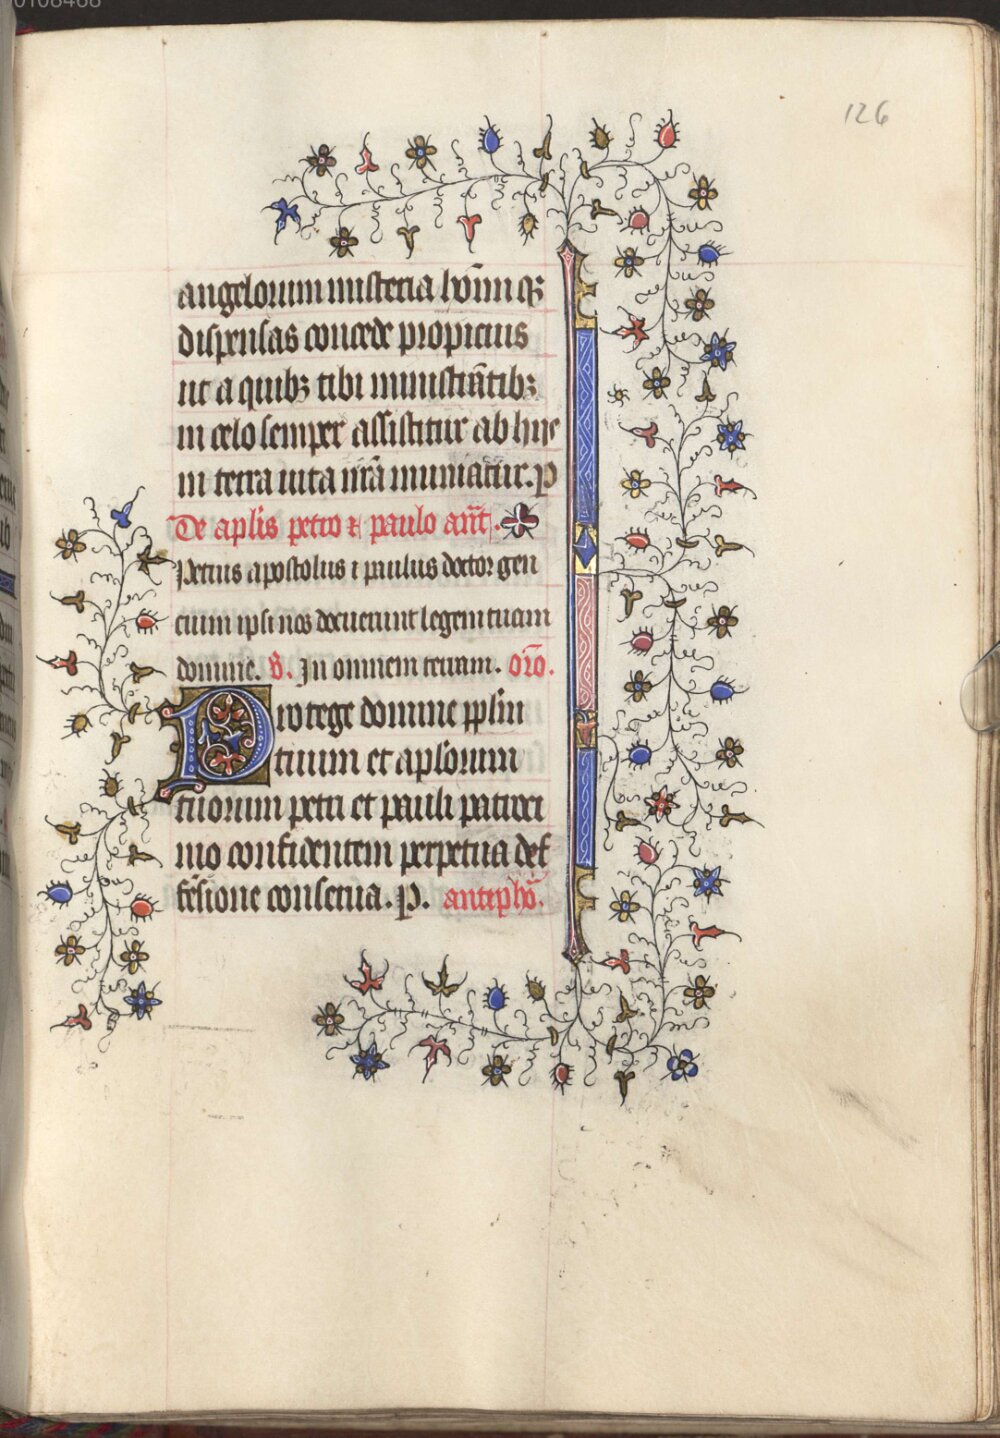 0108468
126
angelorum misteria hōim qꝫ
dispensas concede propicius
ut a quibꝫ tibi ministrātibꝫ
in celo semper assistitur ab hijs
in terra uita nr̄a muniatur. p
De aplis petro ⁊ paulo an̄t.
Petrus apostolus ⁊ paulus doctor gen
cium ipsi nos docuerunt legem tuam
domine. V̓. In omnem terram. or̄o.
Protege domine pplm
tuum et aplorum
tuorum petri et pauli patroci
nio confidentem perpetua def
fēsione conserua. p. antiphō.